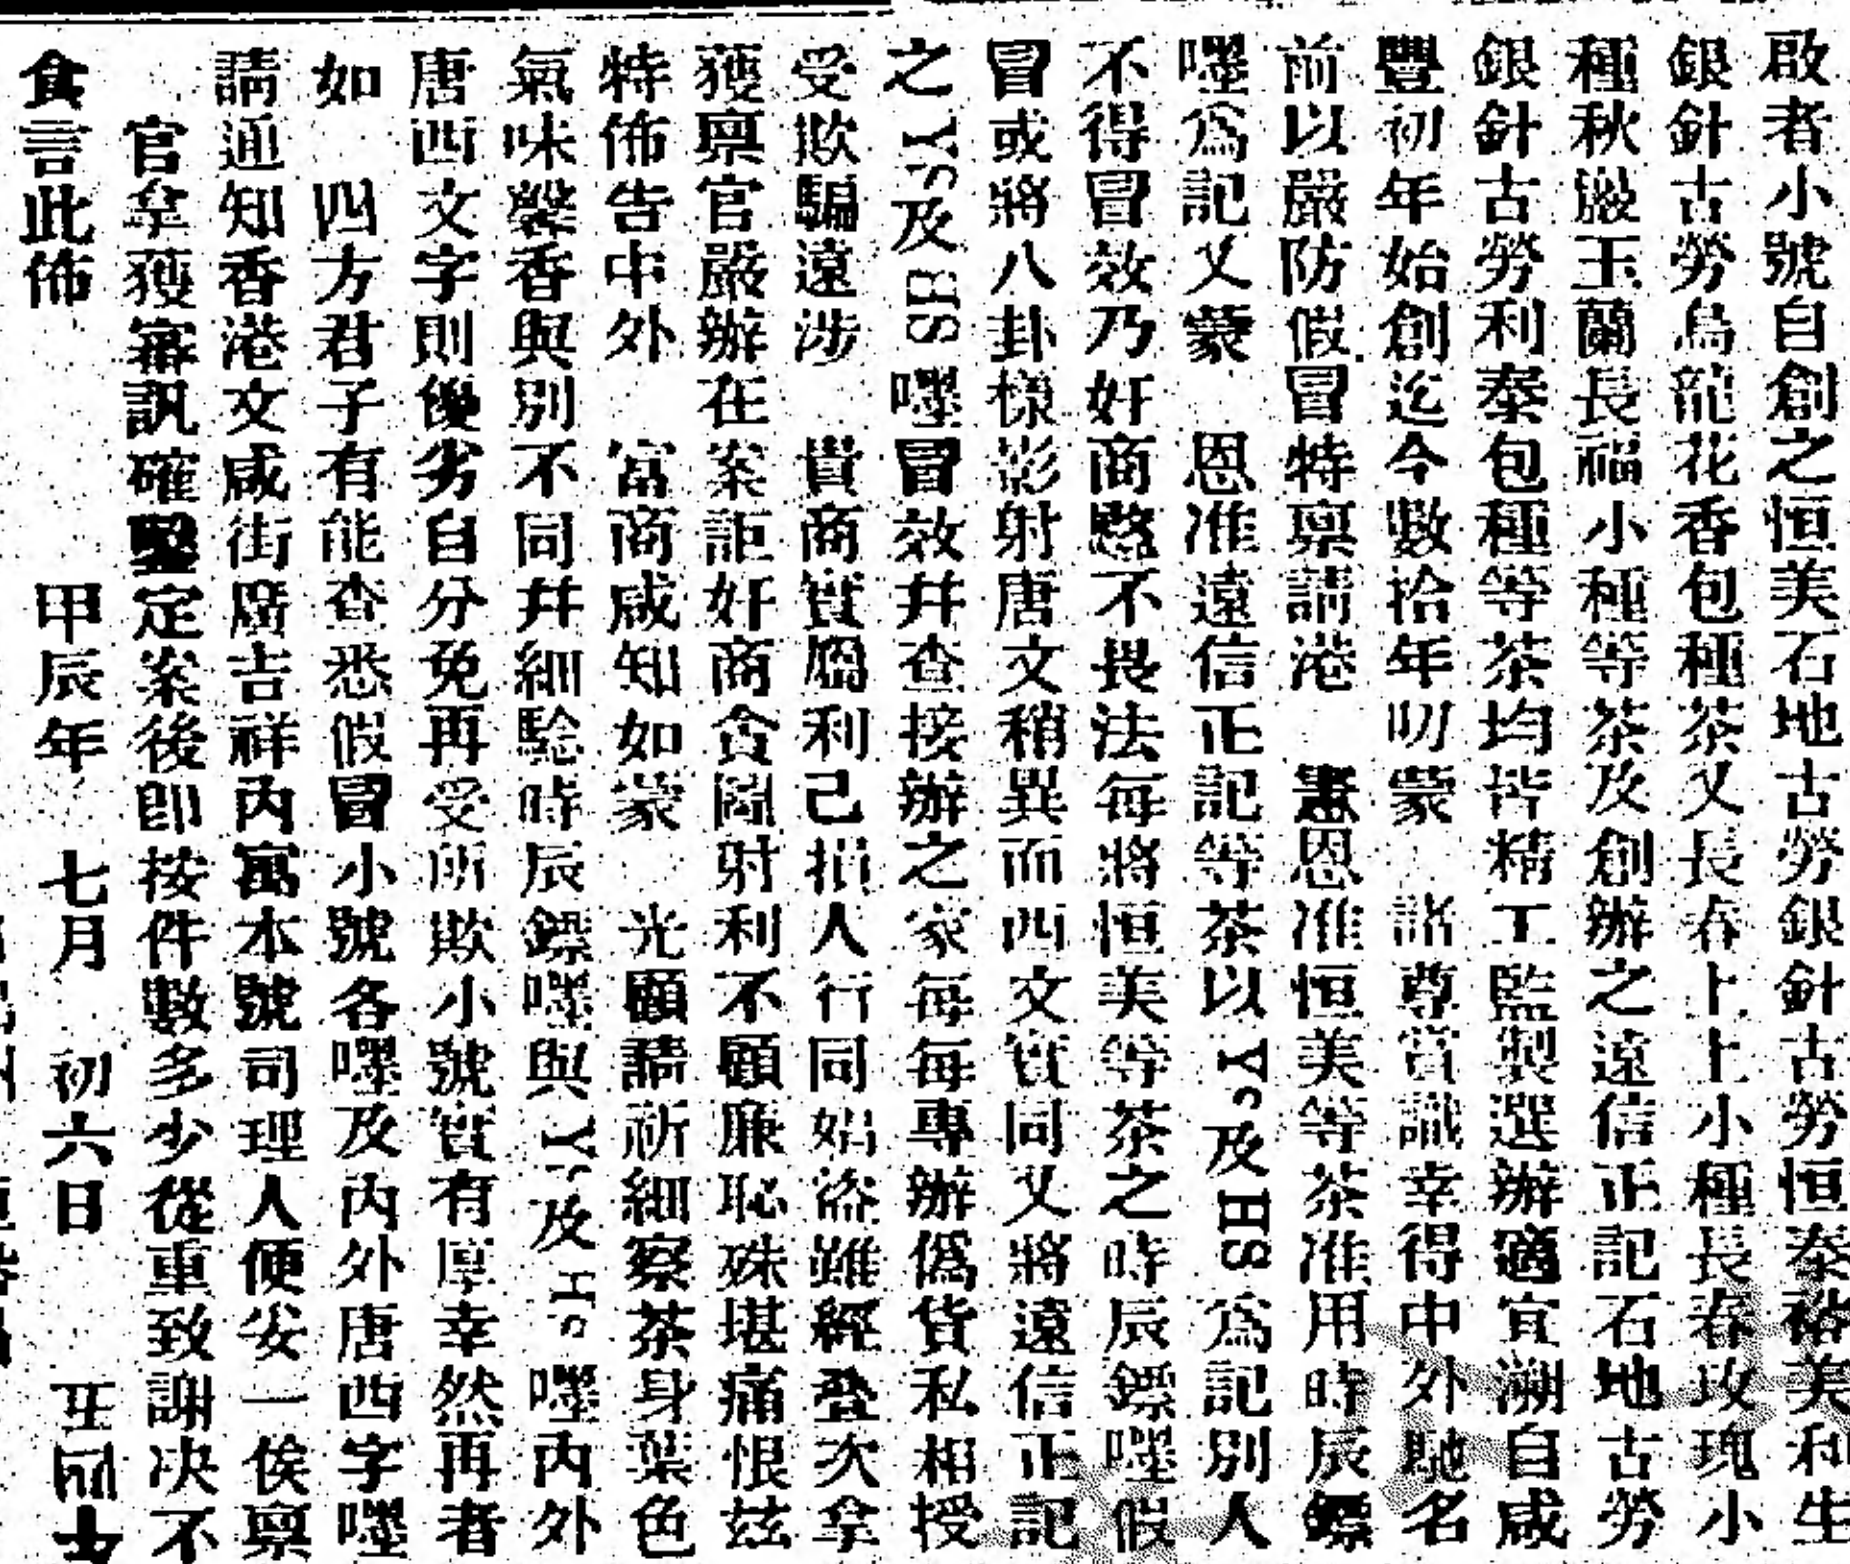 啟者小號自創之恒美石地古勞銀針古勞恒泰裕美利生
銀針古勞烏龍花香包種茶又長春上上小種長春玫瑰小
種秋嚴玉蘭長福小種等茶及創辦之遠信正記石地古勞
銀針古勞利泰包種等茶均皆精工監製選辦適宜溯自咸
豐初年始創迄今數拾年叨蒙 諸尊賞識幸得中外馳名
前以嚴防假冒特禀請港 憲恩准恒美等茶准用時辰鏢
嘜為記又蒙 恩准遠信正記等茶以Y。及HS為記別人
不得冒效乃奸商愍不畏法每將恒美等茶之時辰鏢嘜假
冒或將八卦樣影射唐文稍異而西文實同又將遠信正記
之YS及HS嘜冒效并查接辦之家每每專辦偽貨私相授
受欺騙遠涉 貴商實屬利己損人行同娼盜雖經登次拿
獲禀官嚴辦在案詎奸商貪圖射利不顧廉恥殊堪痛恨玆
特佈告中外 富商咸知如蒙 光顧請祈細察茶身葉色
氣味馨香與別不同并細騐時辰鏢嘜與Y。及H。嘜內外
唐西文字則優劣自分免再受所欺小號實有厚幸然再者
如 四方君子有能查悉假冒小號各嘜及內外唐西字嘜
請通知香港文咸街廣吉祥內寓本號司理人便妥一俟禀
官拿獲審訊確鑿定案後即按件數多少從重致謝决不
食言此佈 甲辰年 七月 初六日